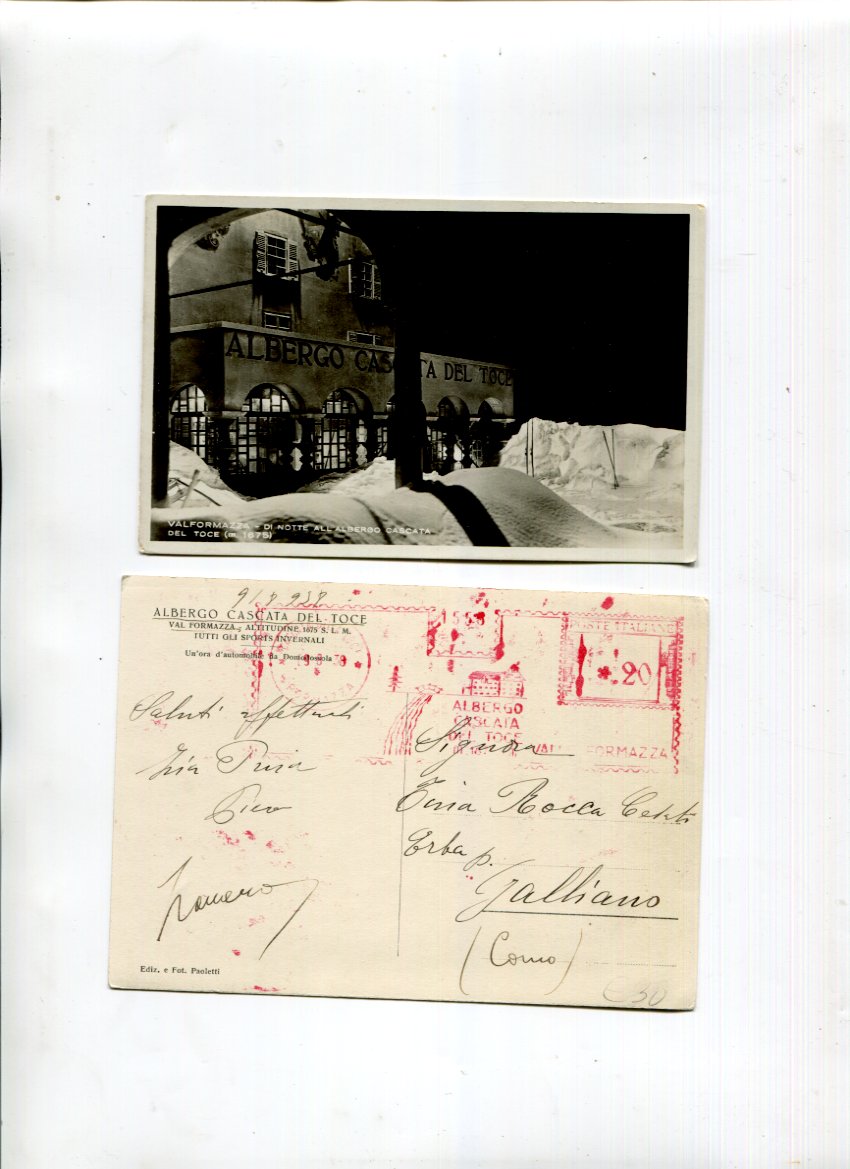 ALBERGO CASCATA DEL TOCE
VALFORMAZZA - DI NOTTE ALL'ALBERGO CASCATA
DEL TOCE (m. 1675)
ALBERGO CASCATA DEL TOCE
VAL FORMAZZA - ALTITUDINE 1675 S. L. M.
TUTTI GLI SPORTS INVERNALI
Un'ora d'automobile da Domodossola
POSTE ITALIANE
.20
ALBERGO
CASCATA
DEL TOCE
FORMAZZA
Saluti affettuosi
Zia
Piera
Signora
Rocca
Erba p.
Galliano
(Como)
Ediz. e Fot. Paoletti